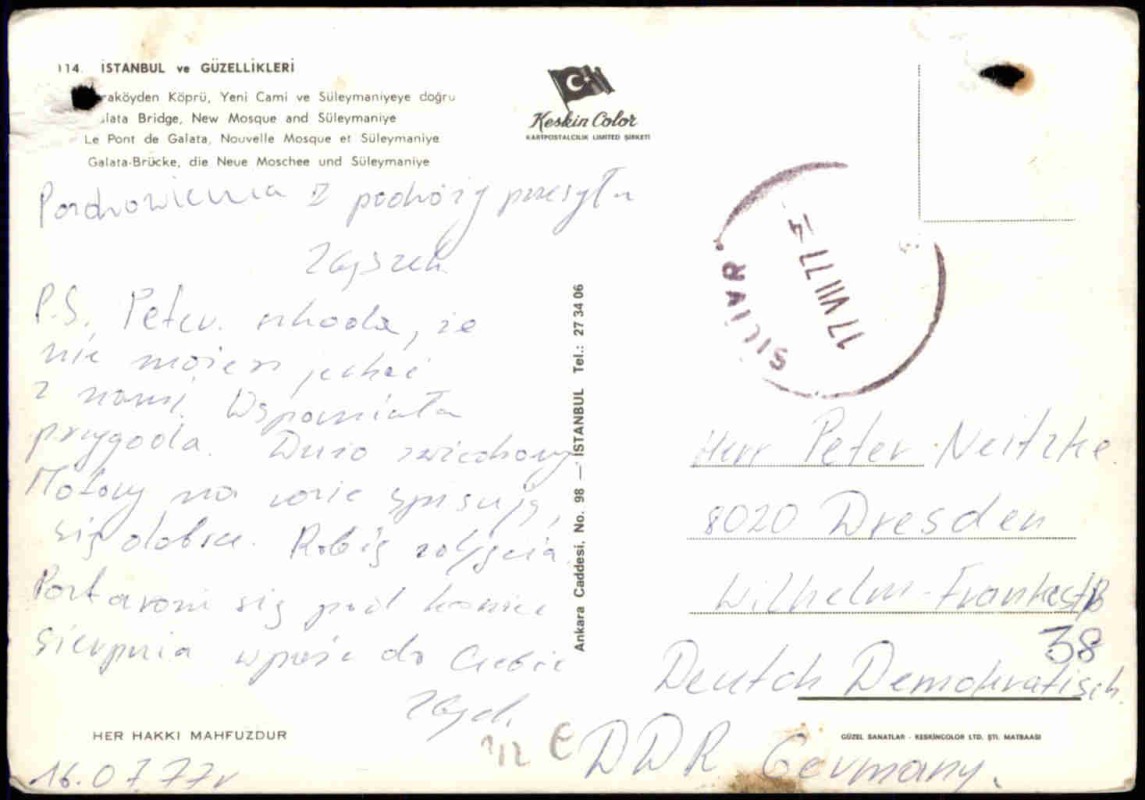 114. İSTANBUL ve GÜZELLİKLERİ
raköyden Köprü, Yeni Cami ve Süleymaniyeye doğru
lata Bridge, New Mosque and Süleymaniye
Le Pont de Galata, Nouvelle Mosque et Süleymaniye
Galata-Brücke, die Neue Moschee und Süleymaniye
Keskin Color
KARTPOSTALCILIK LİMİTED ŞİRKETİ
Pozdrowienia z podróży przesyła
P.S. Peter. szkoda, że
nie możesz jechać
z nami. Wspaniała
przygoda. Dużo zwiedzamy
Motory na razie spisują
się dobrze. Robię zdjęcia.
Postaram się pod koniec
sierpnia wpaść do Ciebie
16.07.77r
HER HAKKI MAHFUZDUR
Ankara Caddesi, No. 98 — İSTANBUL Tel.: 27 34 06
SİLİVR
17 VII 77
Herr Peter Neitzke
8020 Dresden
Wilhelm-Frankestß
38
Deutch Demokratisch.
DDR Germany.
GÜZEL SANATLAR - KESKİNCOLOR LTD. ŞTİ. MATBAASI